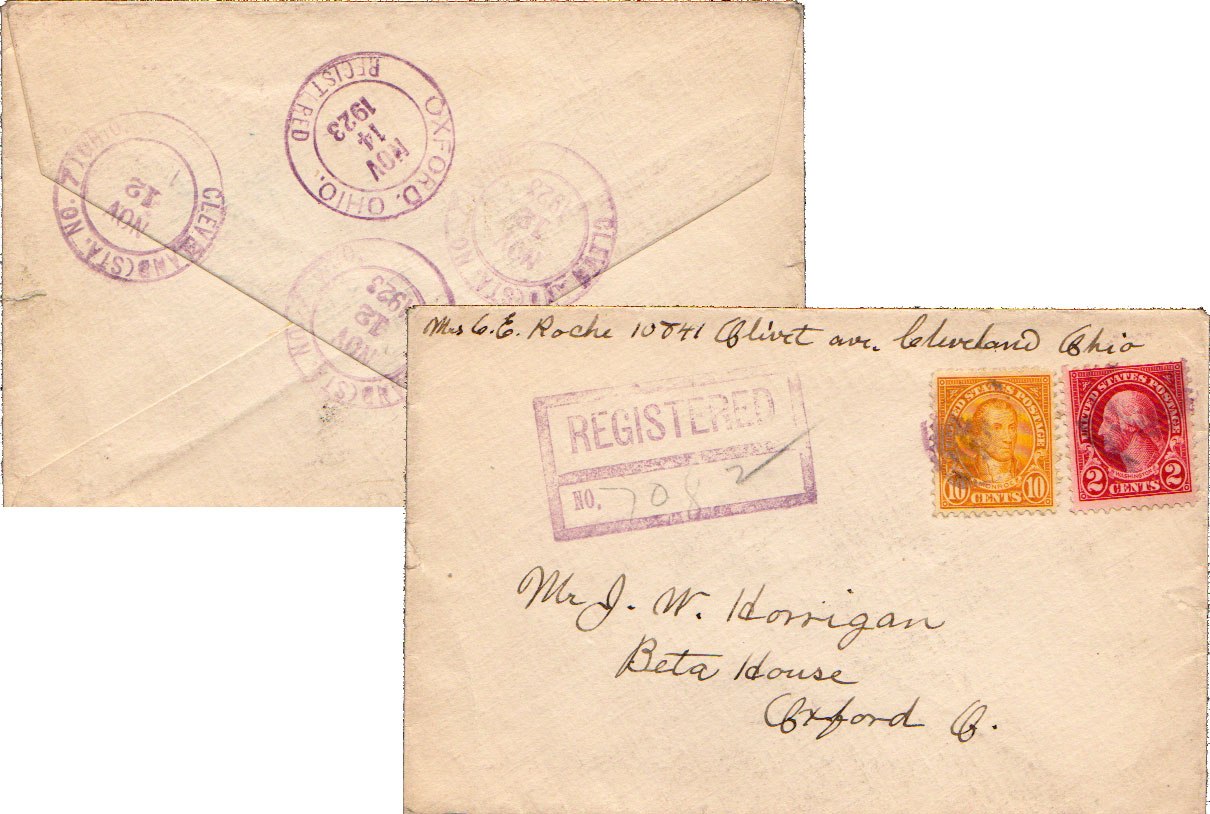 REGISTERED
OXFORD, OHIO.
NOV
14
1923
CLEVELAND (STA. NO. 7)
NOV
12
CLEV
(STA. NO.
NOV
12
1923
NOV
12
1923
Mrs C.E. Roche 10841 Olivet ave. Cleveland Ohio
REGISTERED
NO. 7082
UNITED STATES POSTAGE
MONROE
10 CENTS 10
UNITED STATES POSTAGE
WASHINGTON
2 CENTS 2
Mr J. W. Horrigan
Beta House
Oxford O.